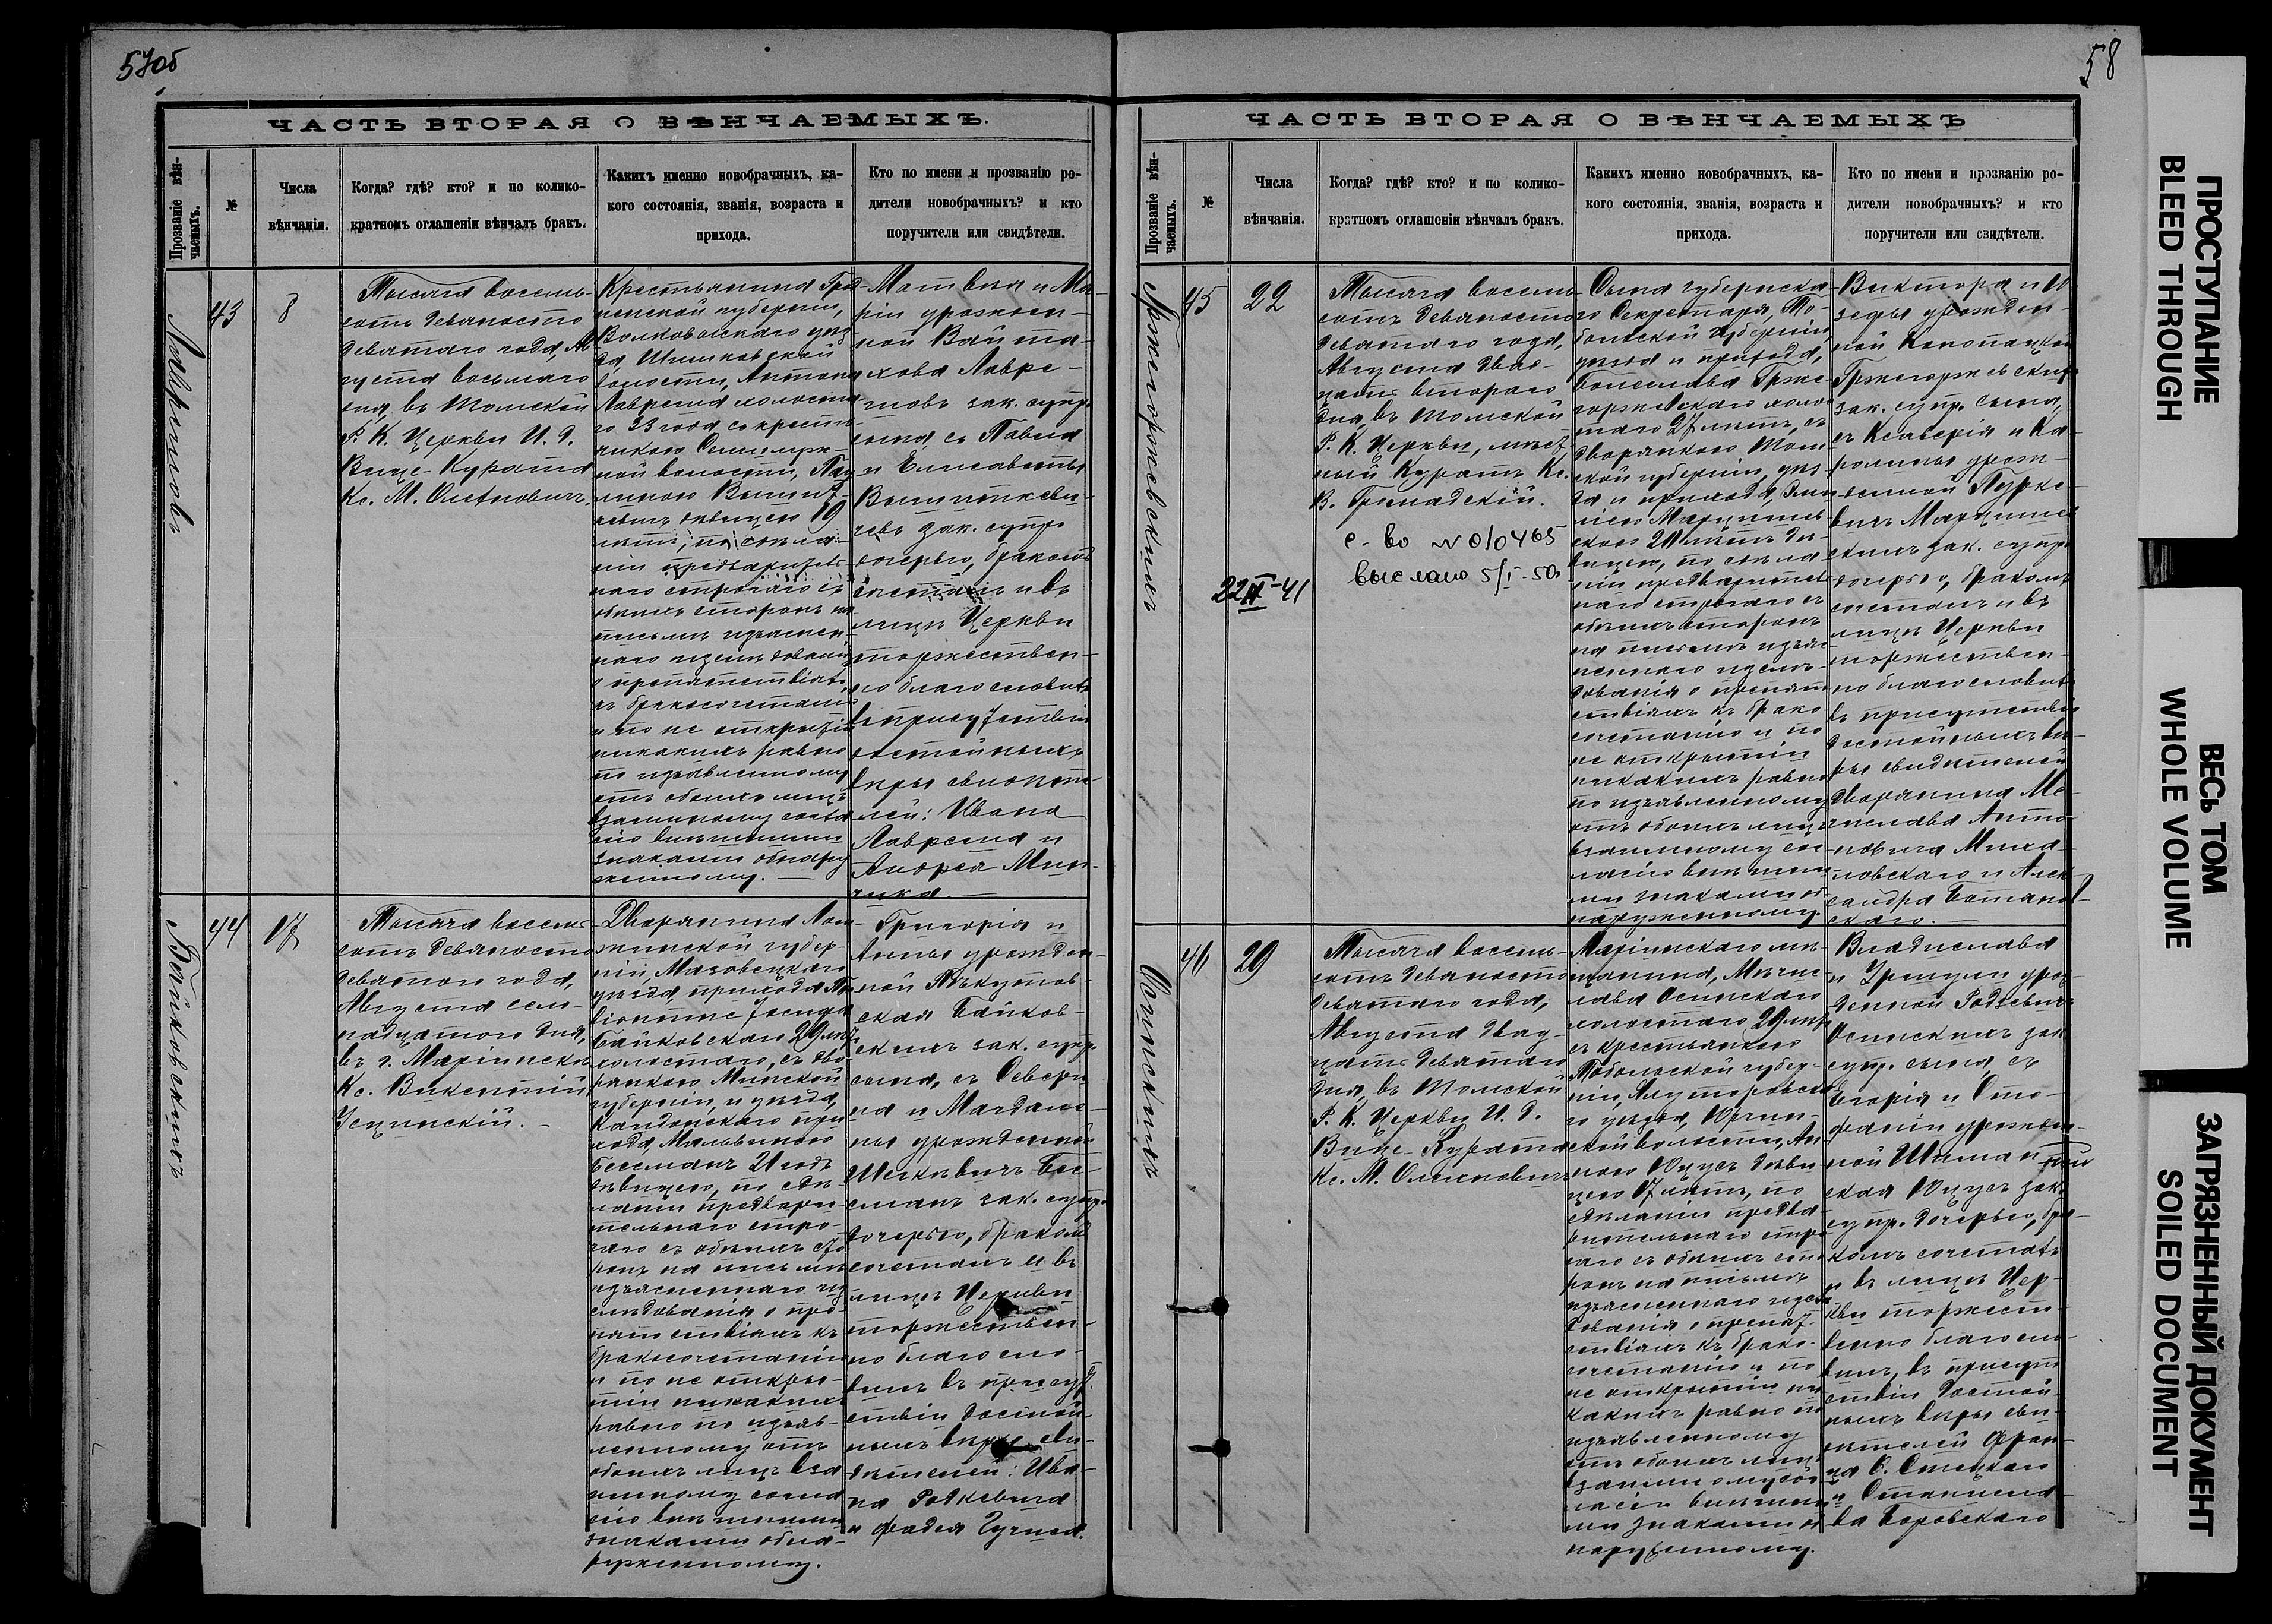 57об
ЧАСТЬ ВТОРАЯ О ВѢНЧАЕМЫХЪ.
Прозваніе вѣн-
чаемыхъ.
№
Числа
вѣнчанія.
Когда? гдѣ? кто? и по колико-
кратномъ оглашеніи вѣнчалъ бракъ.
Какихъ именно новобрачныхъ, ка-
кого состоянія, званія, возраста и
прихода.
Кто по имени и прозванію ро-
дители новобрачныхъ? и кто
поручители или свидѣтели.
43
8
Тысяча восемь-
сотъ девяносто
девятаго года, Ав
густа восьмаго
дня, въ Томской
Р. К. Церкви И. д.
Вице-Курата
Кс. М. Олехновичъ.
Крестьянина Грод
ненской губерніи,
Волковыскаго уѣз
да,
волости, Антона
Лаврента холоста
го 33 года съ кресть
янкою
ной волости, Пау
линою
девицею 19
лѣтъ, по сдѣла-
ніи предваритель
наго строгаго съ
обѣихъ сторонъ на
письмѣ изъяснен-
наго изслѣдованія
о препятствіяхъ
къ бракосочетанію
и по не открытіи
никакихъ равно
по изъявленному
отъ обоихъ лицъ
взаимному согла
сію внѣшними
знаками обнару
женному.
Матвѣя и Ма-
ріи урожден-
ной Войта-
хова Лаврен-
товъ зак. супр.
сына, съ Павла
и Елисаветы
зак. супр.
дочерью, бракомъ
сочеталъ и въ
лицѣ Церкви
торжествен-
но благословилъ
въ присутствіи
достойныхъ
вѣры свидѣте
лей: Ивана
Лаврента и
Андрея
44
17
Байковскихъ
Тысяча восемь-
сотъ девяносто
девятаго года,
Августа сем-
надцатого дня,
въ г. Маріинскѣ
Кс. Викентій
Устинскій.
Дворянина Лом-
жинской губер-
ніи, Мазовецкаго
уѣзда, прихода
Байковскаго 29 лѣтъ
холостаго, съ дво-
рянкою Минской
губерніи, и уѣзда,
при-
хода, Мальвиною
Бессманъ 21 годъ
дѣвицею, по сдѣ-
ланіи предвари-
тельнаго стро-
гаго съ обѣихъ сто
ронъ на письмѣ
изъясненнаго из
слѣдованія о пре-
пятствіяхъ къ
бракосочетанію
и по не откры-
тіи никакихъ
равно по изъяв-
ленному отъ
обоихъ лицъ вза
имному согла
сію внѣшними
знаками обна-
руженному.
Григорія и
Анны урожден-
ной
Байков-
скихъ зак. супр.
сына, съ Севери
на и Магдале-
ны урожденной
Бес-
сманъ зак. супр.
дочерью, бракомъ
сочеталъ и въ
лицѣ Церкви
торжествен-
но благосло-
вилъ въ присут
ствіи достой-
ныхъ вѣры сви-
дѣтелей: Ива-
на Родкевича
и Фадея
58
ЧАСТЬ ВТОРАЯ О ВѢНЧАЕМЫХЪ
Прозваніе вѣн-
чаемыхъ.
№
Числа
вѣнчанія.
Когда? гдѣ? кто? и по колико-
кратномъ оглашеніи вѣнчалъ бракъ.
Какихъ именно новобрачныхъ, ка-
кого состоянія, званія, возраста и
прихода.
Кто по имени и прозванію ро-
дители новобрачныхъ? и кто
поручители или свидѣтели.
Гржегоржевскихъ
45
22
Тысяча восемь
сотъ девяносто
девятаго года,
Августа два-
дцать втораго
дня, въ Томской
Р. К. Церкви, мѣст
ный Куратъ Кс.
В. Громадскій.
с-во № 010465
выслано 5/I-50
22 IV-41
Сына губернска
го Секретаря, То-
больской губерніи,
уѣзда и прихода,
Болеслава Грже-
горжевскаго холо
стаго 27 лѣтъ, съ
дворянкою Том-
ской губерніи, уѣз
да и прихода,
20 лѣтъ дѣ-
вицею, по сдѣла
ніи предваритель
наго строгаго съ
обѣихъ сторонъ
на письмѣ изъяс
неннаго изслѣ-
дованія о препят
ствіяхъ къ брако
сочетанію и по
не открытіи
никакихъ равно
по изъявленному
отъ обоихъ лицъ
взаимному сог
ласію внѣшни
ми знаками об
наруженному.
Виктора и Ю
зефы урожден-
ной Конопацкой
Гржегоржевскихъ
зак. супр. сына,
съ Ксаверія и Ка
ролины урож-
денной
зак. супр.
дочерью, бракомъ
сочеталъ и въ
лицѣ Церкви
торжествен-
но благословилъ
въ присутствіи
достойныхъ вѣ-
ры свидѣтелей
дворянина Ме-
числава Анто-
новича Миха-
ловскаго и Алек-
сандра
46
29
Осинскихъ
Тысяча восемь-
сотъ девяносто
девятаго года,
Августа двад-
цать девятаго
дня, въ Томской
Р. К. Церкви И. д.
Вице-Курата
Кс. М. Олехновичъ
Маріинскаго мѣ-
щанина, Мечис
лава Осинскаго
холостаго 29 лѣтъ
съ крестьянкою
Тобольской губер-
ніи, Ялуторовска
го уѣзда,
ской волости, Ан
ною Юцусъ дѣви
цею 17 лѣтъ, по
сдѣланіи предва-
рительнаго стро
гаго съ обѣихъ сто
ронъ на письмѣ
изъясненнаго изслѣ
дованія о препят
ствіяхъ къ брако-
сочетанію и по
не открытіи ни
какихъ равно по
изъявленному
отъ обоихъ лицъ
взаимному сог
ласію внѣшни
ми знаками об
наруженному.
Владислава
и Урсули урож
денной Родзевичъ
Осинскихъ зак.
супр. сына, съ
Егорія и Сте-
фаніи урожден-
ной
Юцусъ зак.
супр. дочерью, бра-
комъ сочеталъ
и въ лицѣ Цер-
кви торжест-
венно благосло-
вилъ, въ присут
ствіи достой-
ныхъ вѣры сви-
дѣтелей Фран-
ца О.
и Станисла-
ва Боровскаго
ПРОСТУПАНИЕ
BLEED THROUGH
ВЕСЬ ТОМ
WHOLE VOLUME
ЗАГРЯЗНЕННЫЙ ДОКУМЕНТ
SOILED DOCUMENT